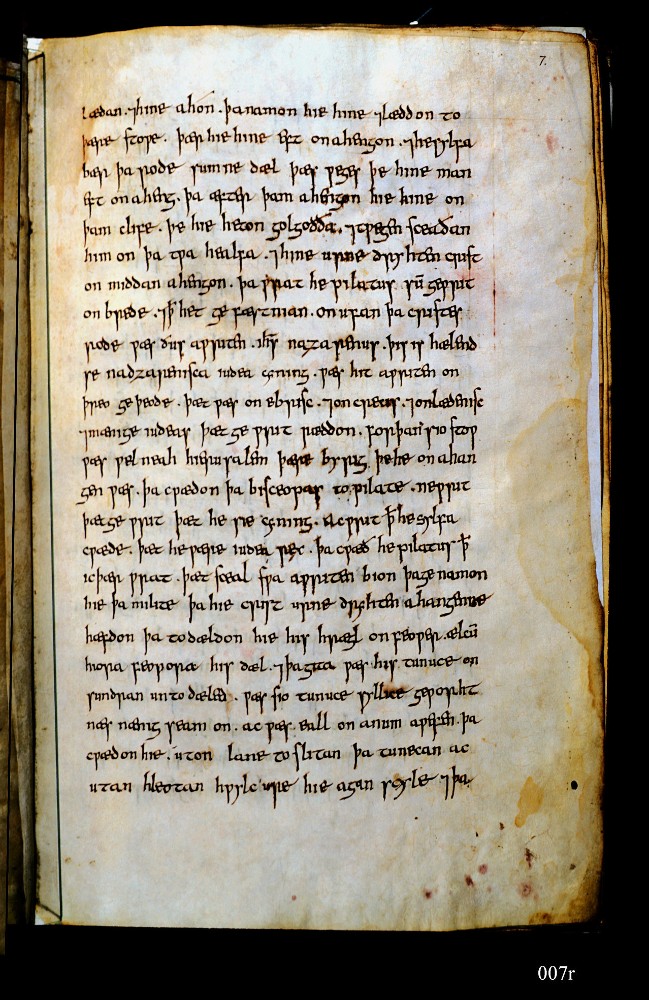 7.
lædan. ⁊hine ahón. þanamon hie hine ⁊læddon to
þære stoƿe. þær hie hine eft onahengon. ⁊hesylfa
bær þa rode sumne dæl þæs ƿeges þe hine man
eft onaheng. þa æfter þam ahengon hie hine on
þam clife. þe hie heton golgoðða. ⁊tƿegen sceaðan
him on þa tƿa healfa. ⁊hine urne dryhten crist
on middan ahengon. þa ƿrat he pilatus sū geƿrit
on brede. ⁊þ̄ het gefæstnian. onufan þa cristes
rode ƿæs ðus aƿriten. ihs̄ nazarenus. þis is hælend
se nadzarenisca iudea cyning. ƿæs hit aƿriten on
þreo geþeode. þæt ƿæs on ebrisc. ⁊oncrecisc. ⁊onlædenisc
⁊mænge iudeas þæt geƿrit ræddon. forþan sio stoƿ
ƿæs ƿel neah hierusalem þære byrig þehe onahan
gen ƿæs. þa cƿædon þa bisceopas to pilate. neƿrit
þæt geƿrit þæt he sie cyning. Acƿrit þ̄ he sylfa
cƿæde. þæt heƿære iudea rex. þa cƿæð he pilatus þ̄
ic þær ƿrat. þæt sceal sƿa aƿriten bion þagenamon
hie þa milite þa hie crist urne dryhten ahangenne
hæfdon þa todældon hie his hrægl onfeoƿer. ælcū
hiora feoƿora his dæl. ⁊þagita ƿæs his tunuce on
sundran untodæled. ƿæs sio tunuce syllice geƿorht
næs nænig seam on. ac ƿæs eall on anum aƿefen. þa
cƿædon hie. uton lane toslitan þa tunecan ac
utan hleotan hƿylc ure hie agan scyle ⁊þa
007r